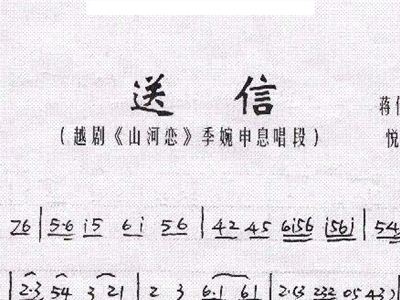 送 信
(越剧《山河恋》季婉申息唱段)
蒋
悦
76 | 5·6 i5 6i 56 | 42 45 6i56 i56i | 54
2·3 54 3 21 | 2 3 6·1 61 |